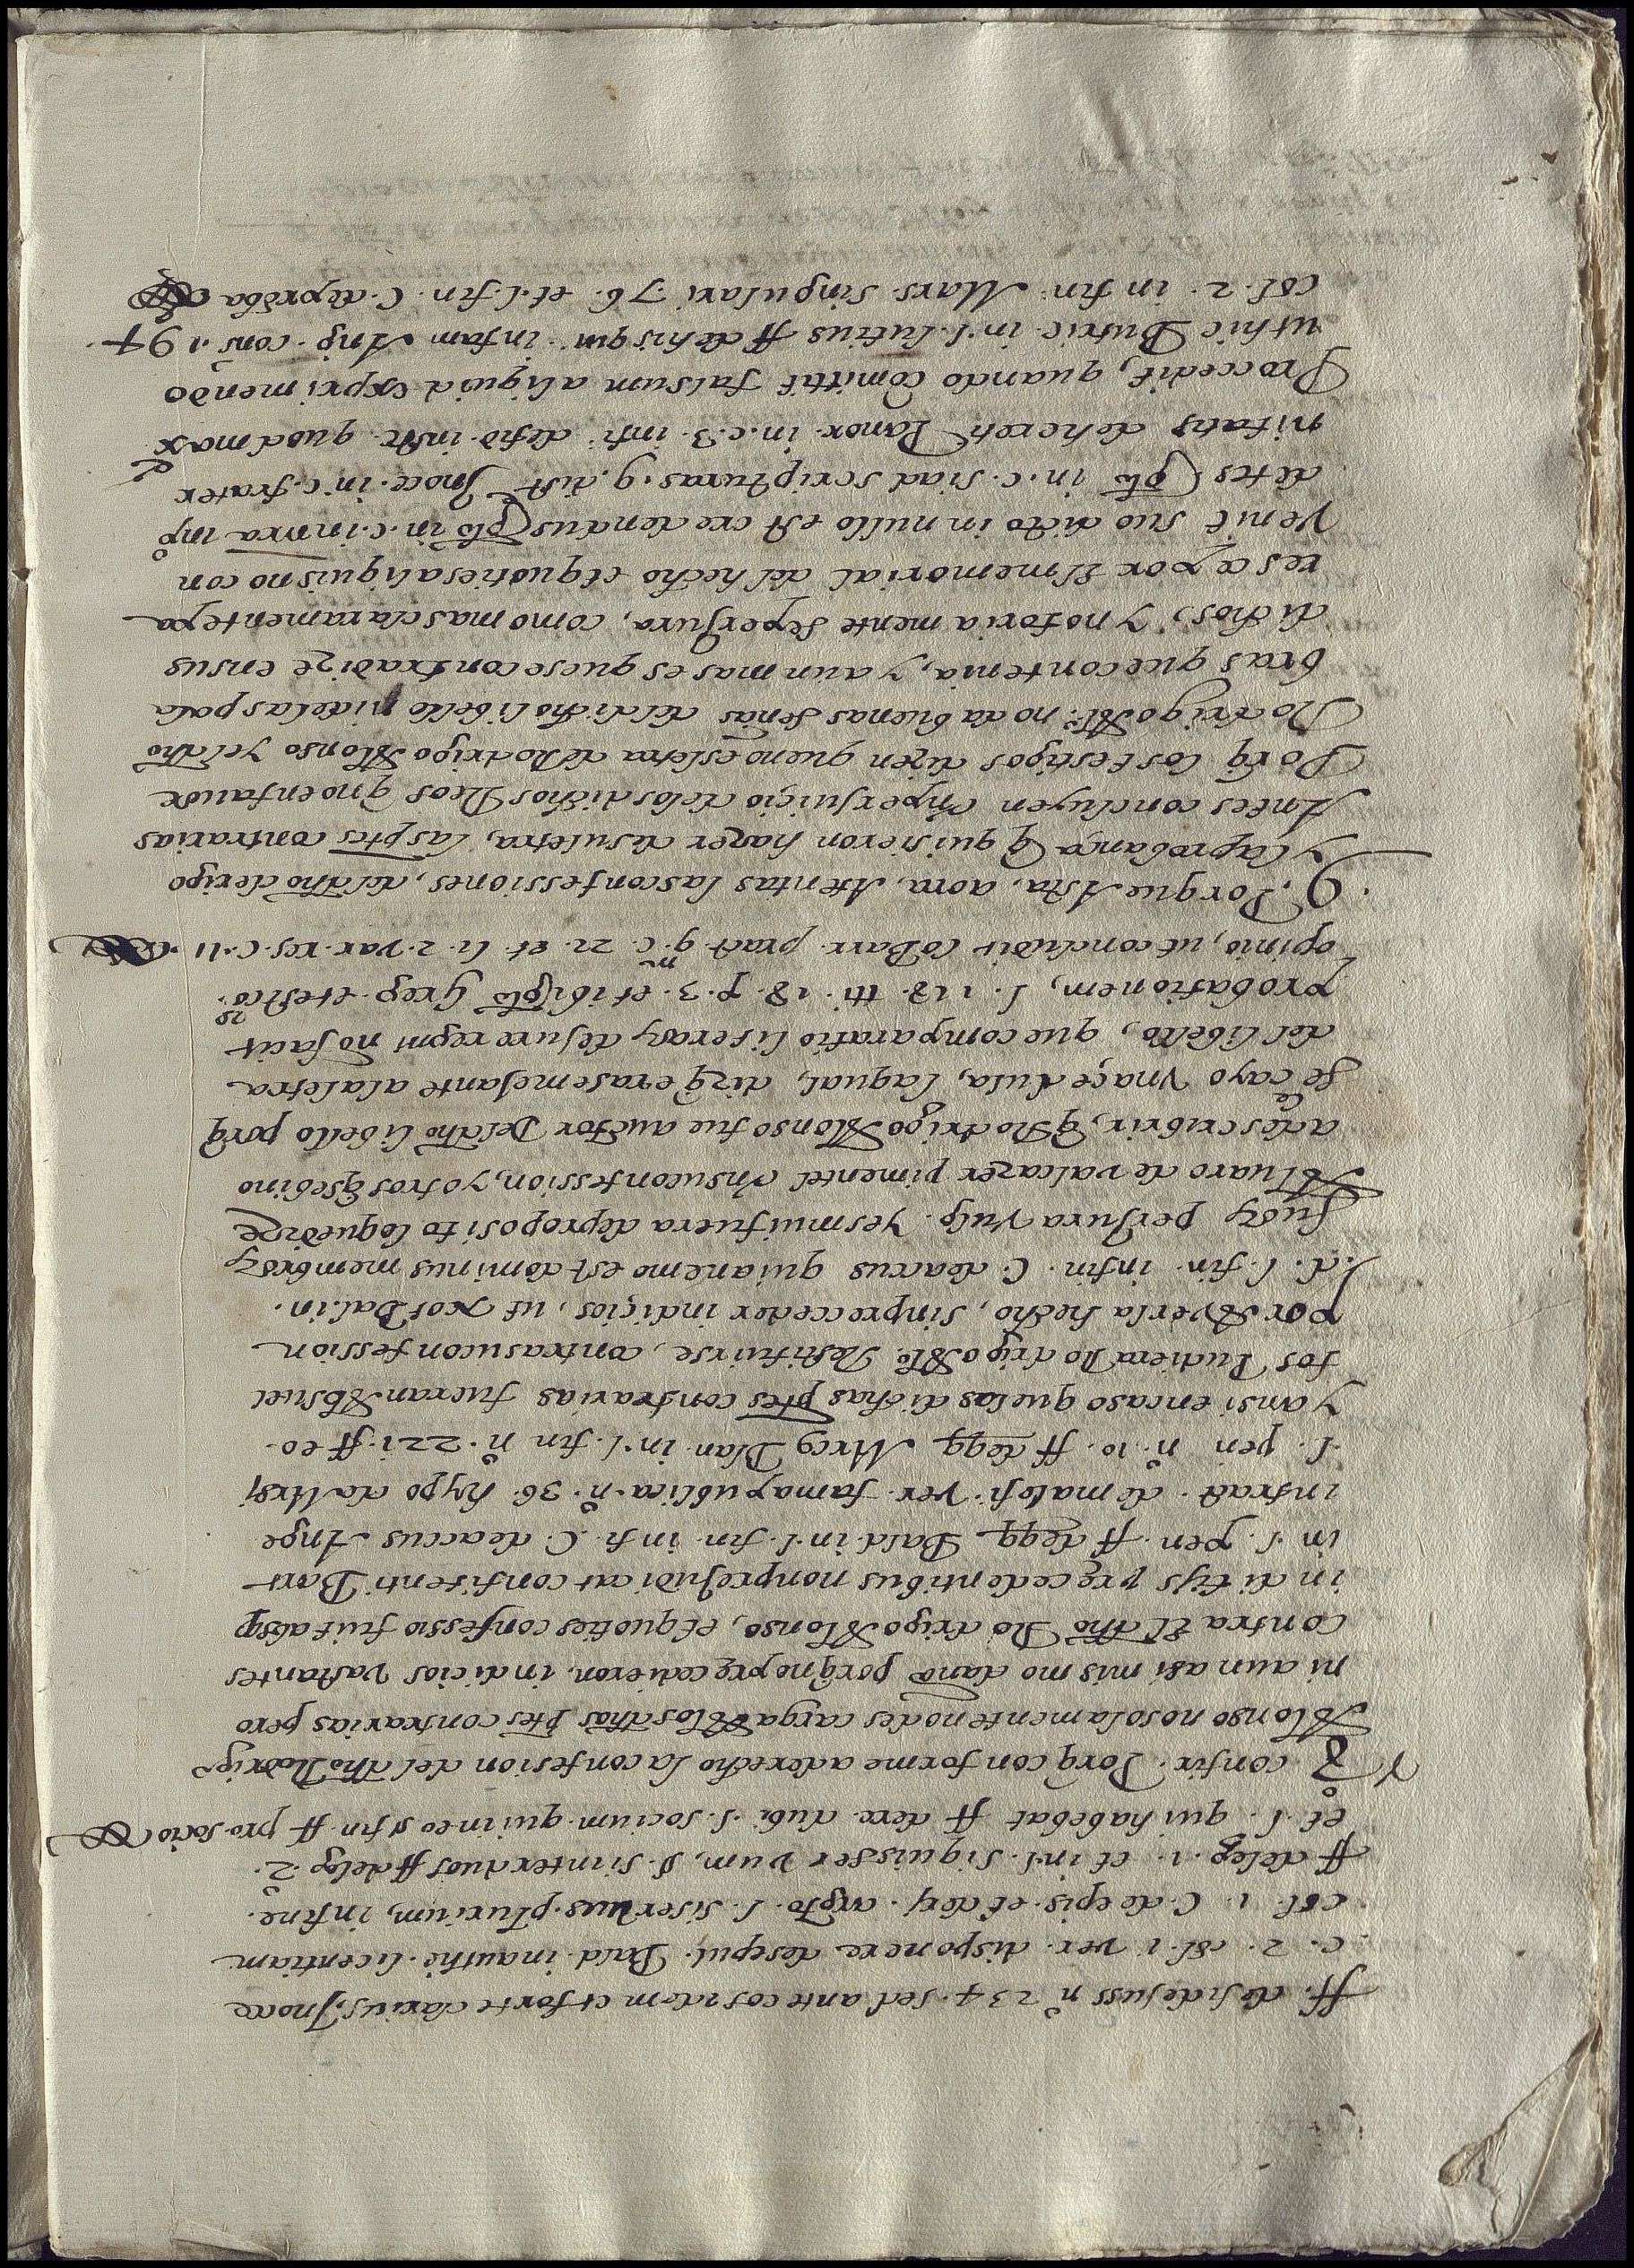 ff. de fidejuss nº 234. sed ante eosdem et forte clarius. Inoce
c. 2. col. 1 ver. disponere de sepul. Bald. in authē. licentiam
col. 1 C de epis. et cleri. argto. l. si servus plurium, in fine.
ff de leg. 1. et in l. si quis servum, §. si inter duos ff de leg. 2.
et l. qui habebat ff de re. dubi. l. socium qui in eo § fin ff pro socio
8 confir. Porq̃ conforme a derecho la confesion del dho Rodrigo
Alonso no solamente no des carga A los dhos ptēs contrarias pero
ni aun a si mismo daño porq̃ no precedieron, indicios vastantes
contra El dho Rodrigo Alonso, et quoties confessio fuit absq̃
inditijs precedentibus non prejudicat confitenti Bart
in l. pen. ff de qq Bald. in l. fin. in fi. C. de accus Ange
in trat. de malefi. ver. fama publica. nº. 36. hypo da Mrsi
l. pen nº. 10. ff de qq Mrcº Blan. in l. fin nº. 221. ff. eo.
Y ansi en caso que las dichas ptes contrarias fueran Absuel
tos Pudiera Rodrigo Alº. Restituirse, contra su confession
por Averla hecho, sin preceder indicios, ut post Bal. in.
d. l. fin. in fin. C. de accus quia nemo est dominus membroꝝ
suoꝝ per jura vulg. Y es mui fuera de proposito lo que dize
Alvaro de valcazer pimentel en su confession, y otros q̃ se vino
a desscubrir, q̃ Rodrigo Alonso fue auctor Del dho libello porq̃
se le cayo una çedula, la qual, diz q̃ era semejante a la letra
del libello, que comparatio literaꝝ de jure regni no facit
probationem, l. 118. tit. 18. p. 3. et ibi glo Greg. et est cōis
opinio, ut concludit CoBarr. pract. qm̄. c. 22 et li. 2. var. res. c. 11.
9. Porque Asta, aora, Atentas las confessiones, del dho derigo
Y la probança q̃ quisieron hazer de su letra, las ptes contrarias
Antes concluyen En perjuiçio de los dichos Reos q̃ no en fauor
Porq̃ los testigos dizen que no es letra de Rodrigo Alonso y el dhō
Rodrigo Alº. no da buenas señas del dicho libello ni de las pala
bras que contenia, y aun mas es que se contradize en sus
dichos, y notoria mente se perjura, como mas claramente pa
resce por El memorial del hecho et quoties aliquis no con
venit suo dicto in nullo est credendus glo in. c. in nra
de tes glo in. c. si ad scripturas. 9. dist. Inoce. in c. frater
nitatis de hereti Panor. in. c. 3. in fi. de fid. instr. quod max
Procedit, quando comittit falsum aliquid exprimendo
ut hic Butric. in l. lutius ff de his qui in fam. Ang. cons. 194
col. 2. in fin. Mars. singulari 76. et. l. fin. C. de proba